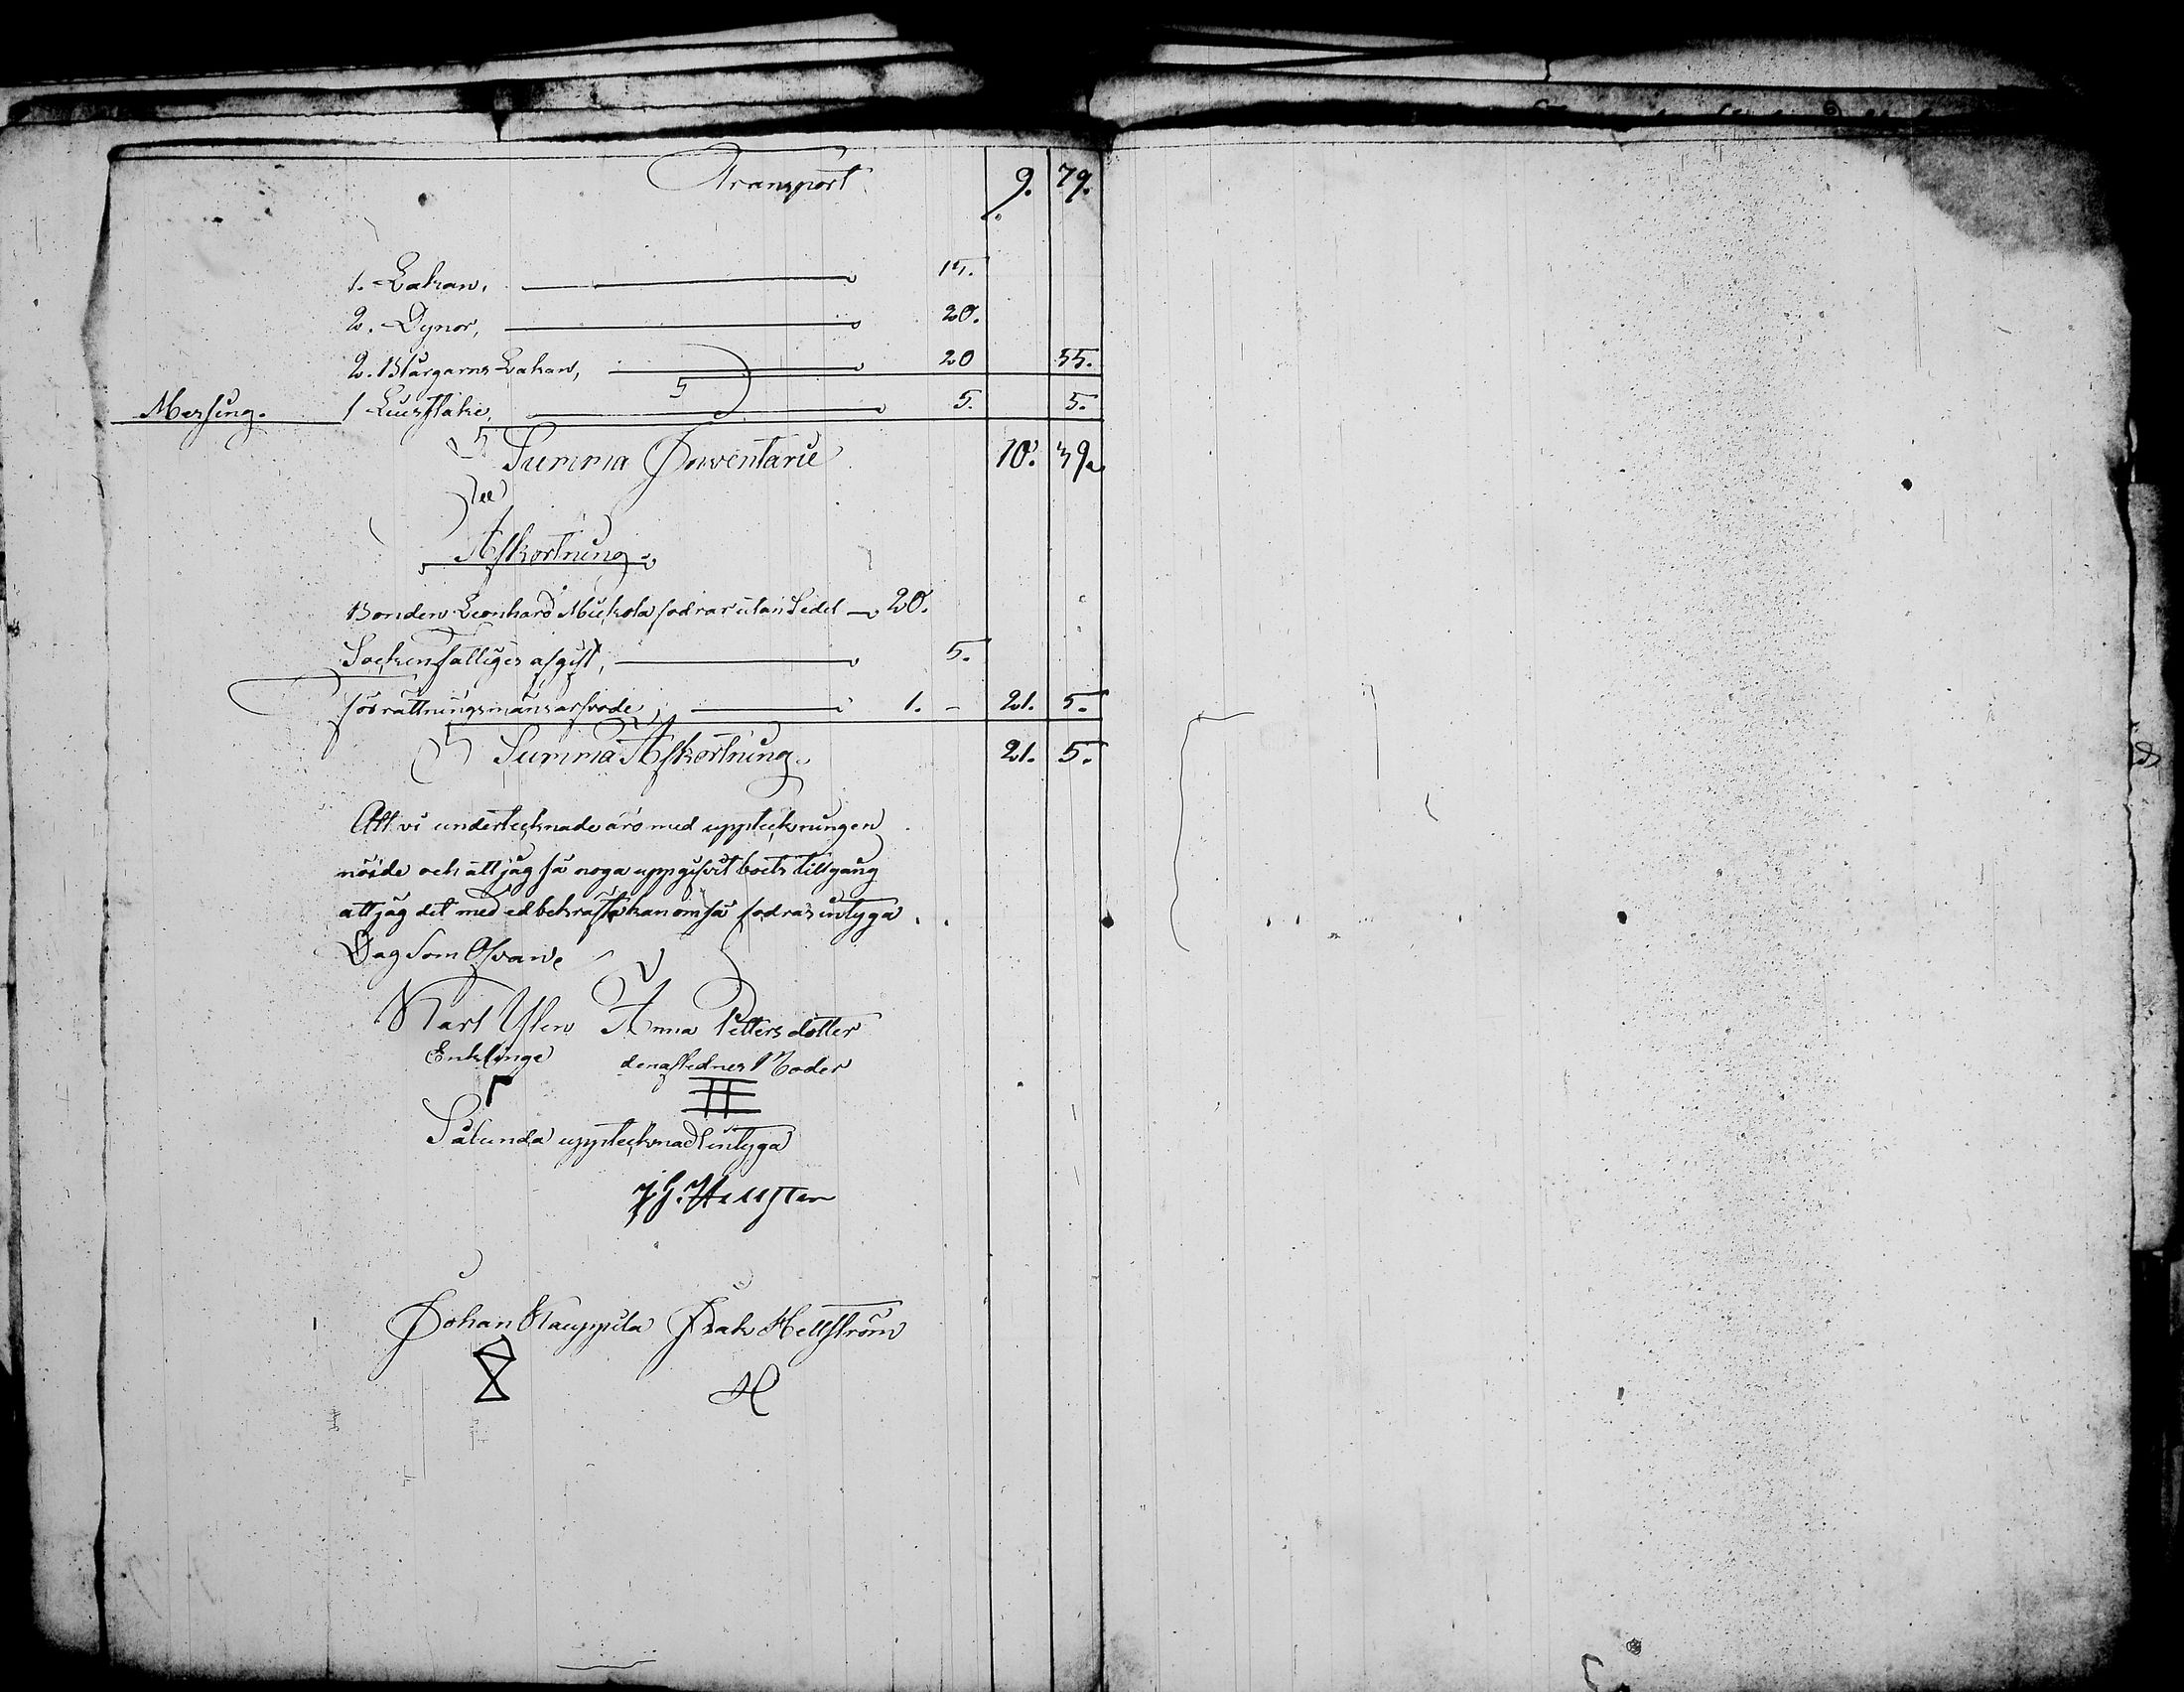 Transport 9. 79.
1. Lakan, 15.
2. Dynor, 20.
2. Blårgarns Lakan, 20 55.
Messing. 1 Liusstake, 5. 5.
Summa Inventarie 10. 39
Afkortning
Bonden Leonhard Mickola fodrar utan Sedel 20.
Sockenfattiges afgift, 5.
förrättningsmans arfvode, 1. - 21. 5.
Summa Afkortning. 21. 5.
Att vi undertecknade äro med uppteckningen
nöide och att jag så noga uppgifvit boets tillgång
att jag det med ed bekräfta kan om så fodras intyga
Dag Som Ofvan
Karl Ylen Anna Petters dotter
Enklinge den aflednes Moder
Sålunda upptecknadt intyga
J. G. Hellsten
Johan Kauppila Isak Hellström
H